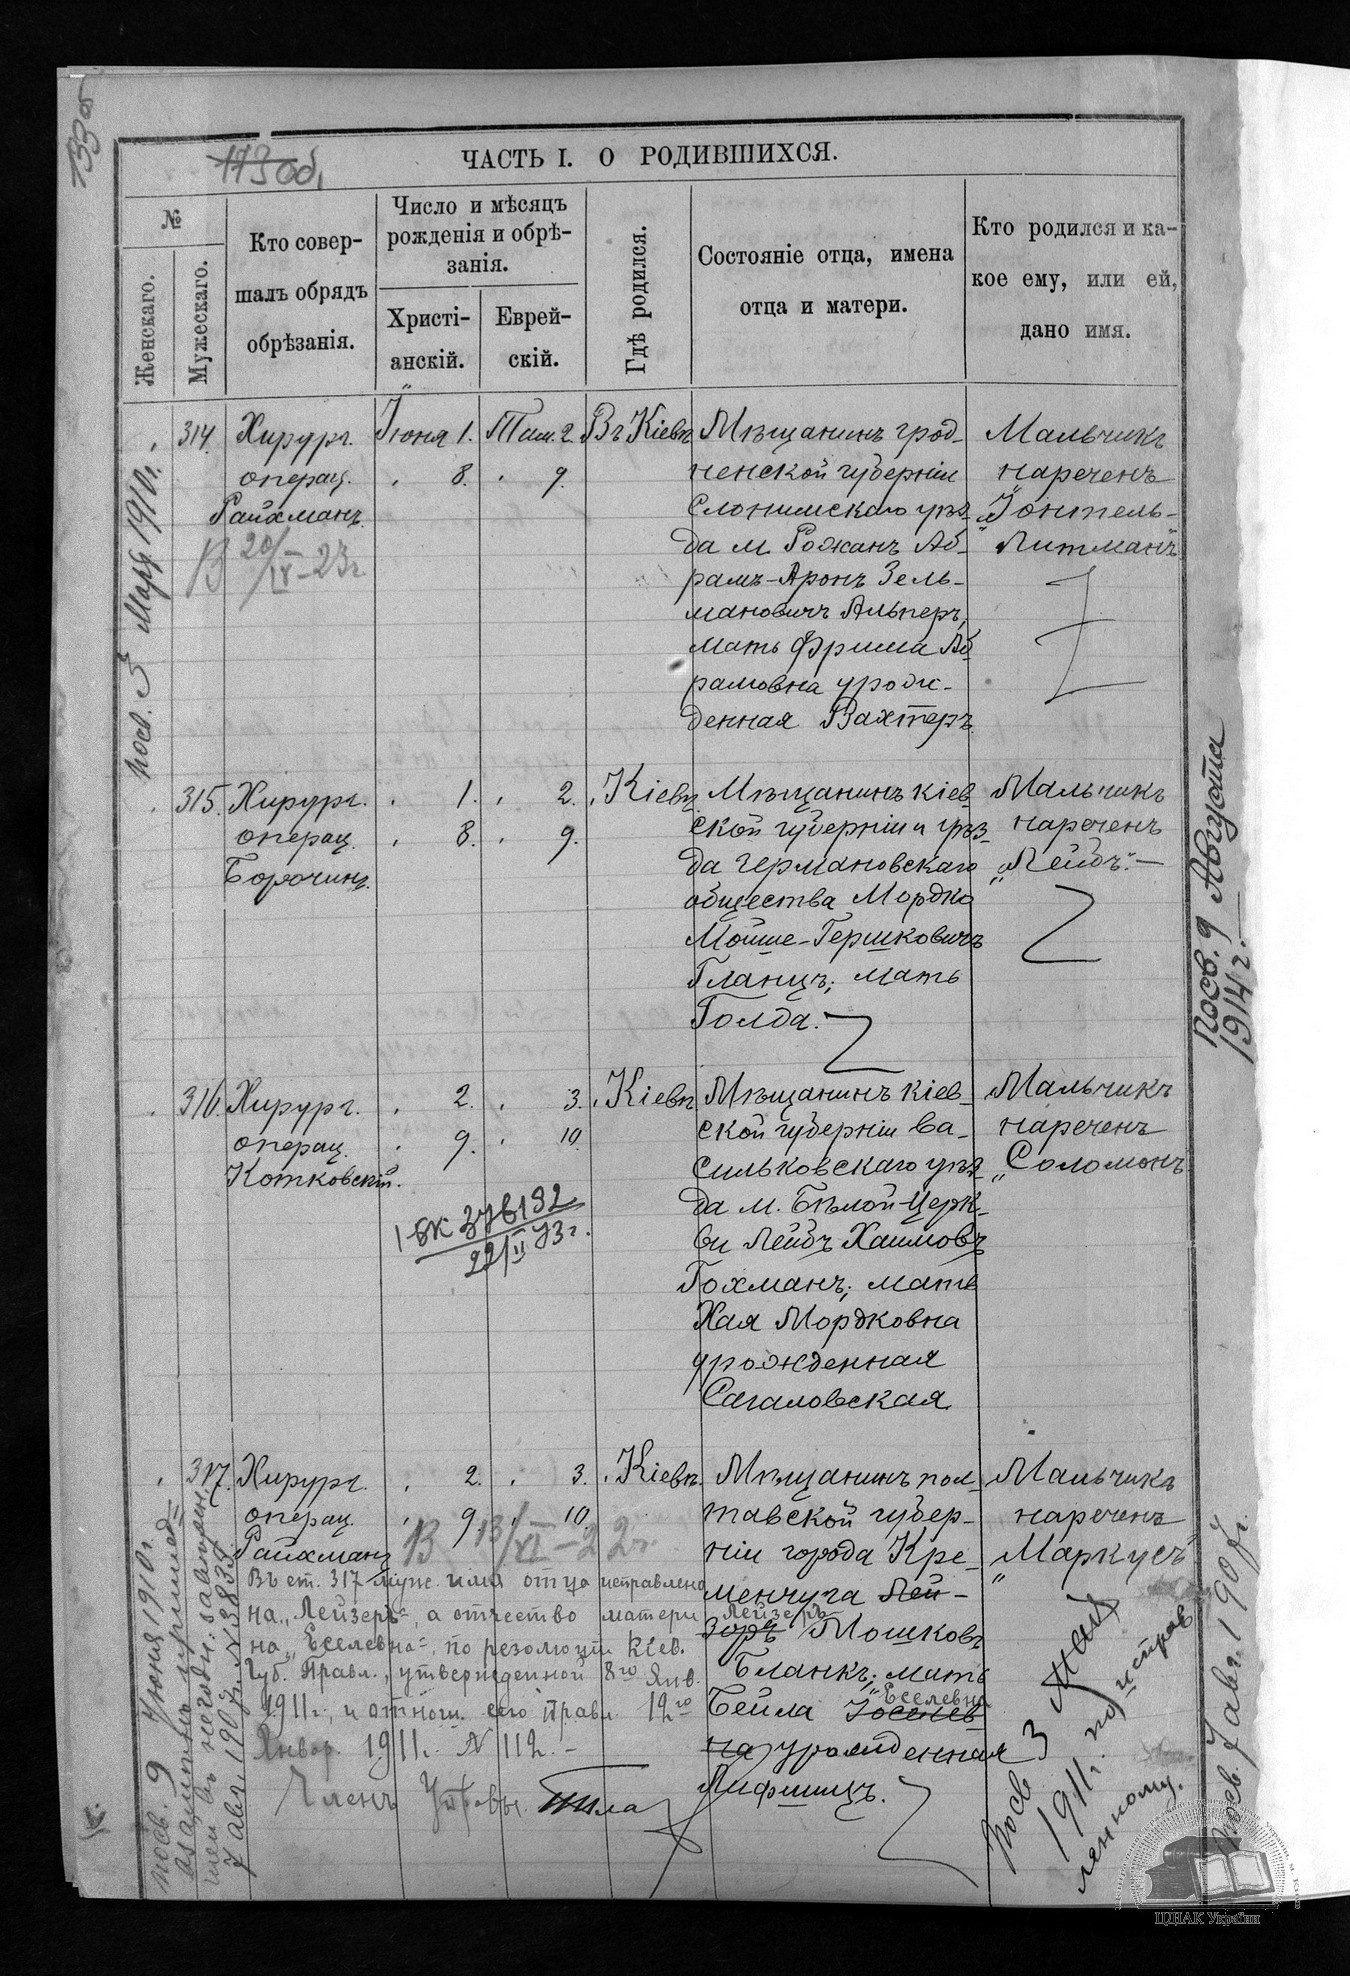 133об
113об.
ЧАСТЬ I. О РОДИВШИХСЯ.
№
Женскаго.
Мужескаго.
Кто совер-
шалъ обрядъ
обрѣзанія.
Число и мѣсяцъ
рожденія и обрѣ-
занія.
Христі-
анскій.
Еврей-
скій.
Гдѣ родился.
Состояніе отца, имена
отца и матери.
Кто родился и ка-
кое ему, или ей,
дано имя.
314.
Хирург.
операц.
Райхманъ.
Іюня 1.
8.
Там. 2.
9.
Въ Кіевѣ
Мѣщанинъ грод-
ненской губерніи
Слонимскаго уѣз-
да м. Рожанъ Аб-
рамъ-Аронъ Зель-
мановичъ Альперъ,
мать Фрима Аб-
рамовна урож-
денная Вахтеръ.
Мальчикъ
нареченъ
„Іонтель-
Литманъ“
В 20/IX-23г
посв. 3 Мар. 1910г.
315.
Хирург.
операц.
Борочинъ.
1.
8.
2.
9.
Кіевѣ
Мѣщанинъ кіев-
ской губерніи и уѣз-
да германовскаго
общества Мордко
Мойше-Гершковичъ
Гланцъ; мать
Голда.
Мальчикъ
нареченъ
„Лейбъ“.—
316.
Хирург.
операц.
Котковскій.
2.
9.
3.
10.
Кіевѣ
Мѣщанинъ кіев-
ской губерніи Ва-
сильковскаго уѣз-
да м. Бѣлой-Церк-
ви Лейбъ Хаимовъ
Гохманъ; мать
Хая Мордковна
урожденная
Сагаловская
Мальчикъ
нареченъ
„Соломонъ
22/II 73г.
Посв. 9 Августа
1914г.—
317.
Хирург.
операц.
Райхманъ
2.
9.
3.
10.
Кіевѣ.
Мѣщанинъ пол-
тавской губер-
ніи города Кре-
менчуга Лей-
Лейзеръ
зоръ Мошковъ
Бланкъ; мать
Еселевна
Бейла Іоселев-
на урожденная
Лифшицъ.
Мальчикъ
нареченъ
„Маркусъ“
В 13/XI-22г.
Въ ст. 317 муж. имя отца исправлено
на „Лейзеръ“, а отчество матери
на „Еселевна“, по резолюціи Кіев.
Губ. Правл., утвержденной 8го Янв.
1911г., и отнош. его Правл. 12го
Январ. 1911г. № 112.-
Членъ Управы
посв. 9 Іюня 1910г.
7 авг. 1907г. № 3839
посв 3 Мая
1911г. по исправ
ленному.
Посв. 7 авг. 1907г.
ЦДІАК України